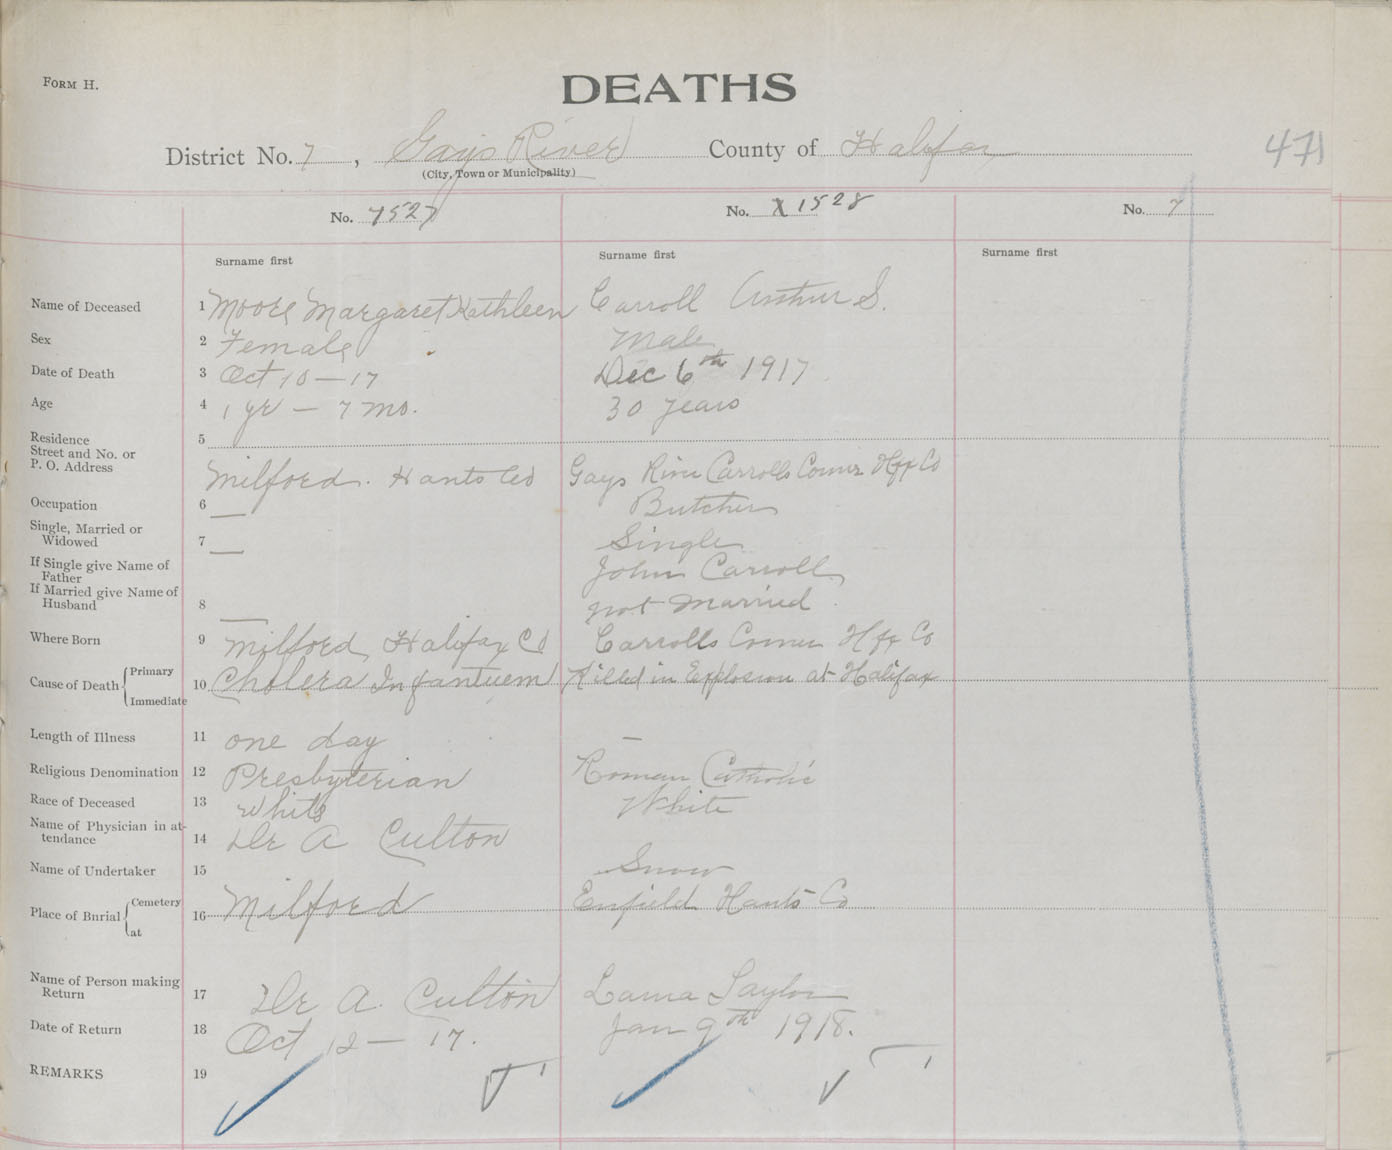 FORM H.
DEATHS
471
District No. 7, Gays River County of Halifax
(City, Town or Municipality)
No. 7527 No. X 1528 No. 7
Surname first Surname first Surname first
Name of Deceased 1 Moore Margaret Kathleen Carroll Arthur S.
Sex 2 Female Male
Date of Death 3 Oct 10 — 17 Dec 6th 1917
Age 4 1 yr — 7 mo. 30 years
Residence 5
Street and No. or
P. O. Address Milford. Hants Co Gays River Carrolls Corner Hfx Co
Occupation 6 — Butcher
Single, Married or
Widowed 7 — Single
If Single give Name of
Father John Carroll
If Married give Name of
Husband 8 — not Married
Where Born 9 Milford, Halifax Co Carrolls Corner Hfx Co
Cause of Death { Primary
Immediate 10 Cholera Infantuem Killed in Explosion at Halifax
Length of Illness 11 one day —
Religious Denomination 12 Presbyterian Roman Catholic
Race of Deceased 13 White White
Name of Physician in at-
tendance 14 Dr A Culton
Name of Undertaker 15 Snow
Place of Burial { Cemetery
at 16 Milford Enfield Hants Co
Name of Person making
Return 17 Dr A. Culton Laura Taylor
Date of Return 18 Oct 12 — 17. Jan 9th 1918.
REMARKS 19